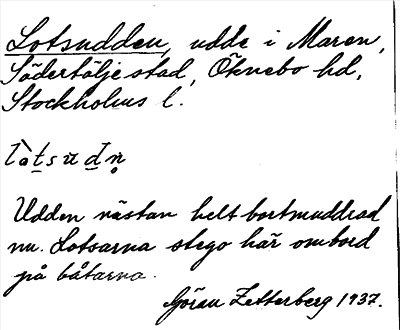 Lotsudden, udde i Maren,
Södertälje stad, Öknebo hd,
Stockholms l.
Udden nästan helt bortmuddrad
nu. Lotsarna stego här ombord
på båtarna.
Göran Zetterberg 1937.